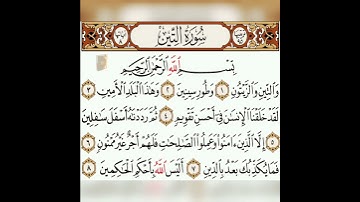 سُورَةُ التِّينِ
بِسْمِ اللَّهِ الرَّحْمَٰنِ الرَّحِيمِ
وَالتِّينِ وَالزَّيْتُونِ ١ وَطُورِ سِينِينَ ٢ وَهَٰذَا الْبَلَدِ الْأَمِينِ ٣
لَقَدْ خَلَقْنَا الْإِنسَٰنَ فِي أَحْسَنِ تَقْوِيمٍ ٤ ثُمَّ رَدَدْنَٰهُ أَسْفَلَ سَٰفِلِينَ
٥ إِلَّا الَّذِينَ ءَامَنُوا وَعَمِلُوا الصَّٰلِحَٰتِ فَلَهُمْ أَجْرٌ غَيْرُ مَمْنُونٍ ٦
فَمَا يُكَذِّبُكَ بَعْدُ بِالدِّينِ ٧ أَلَيْسَ اللَّهُ بِأَحْكَمِ الْحَٰكِمِينَ ٨